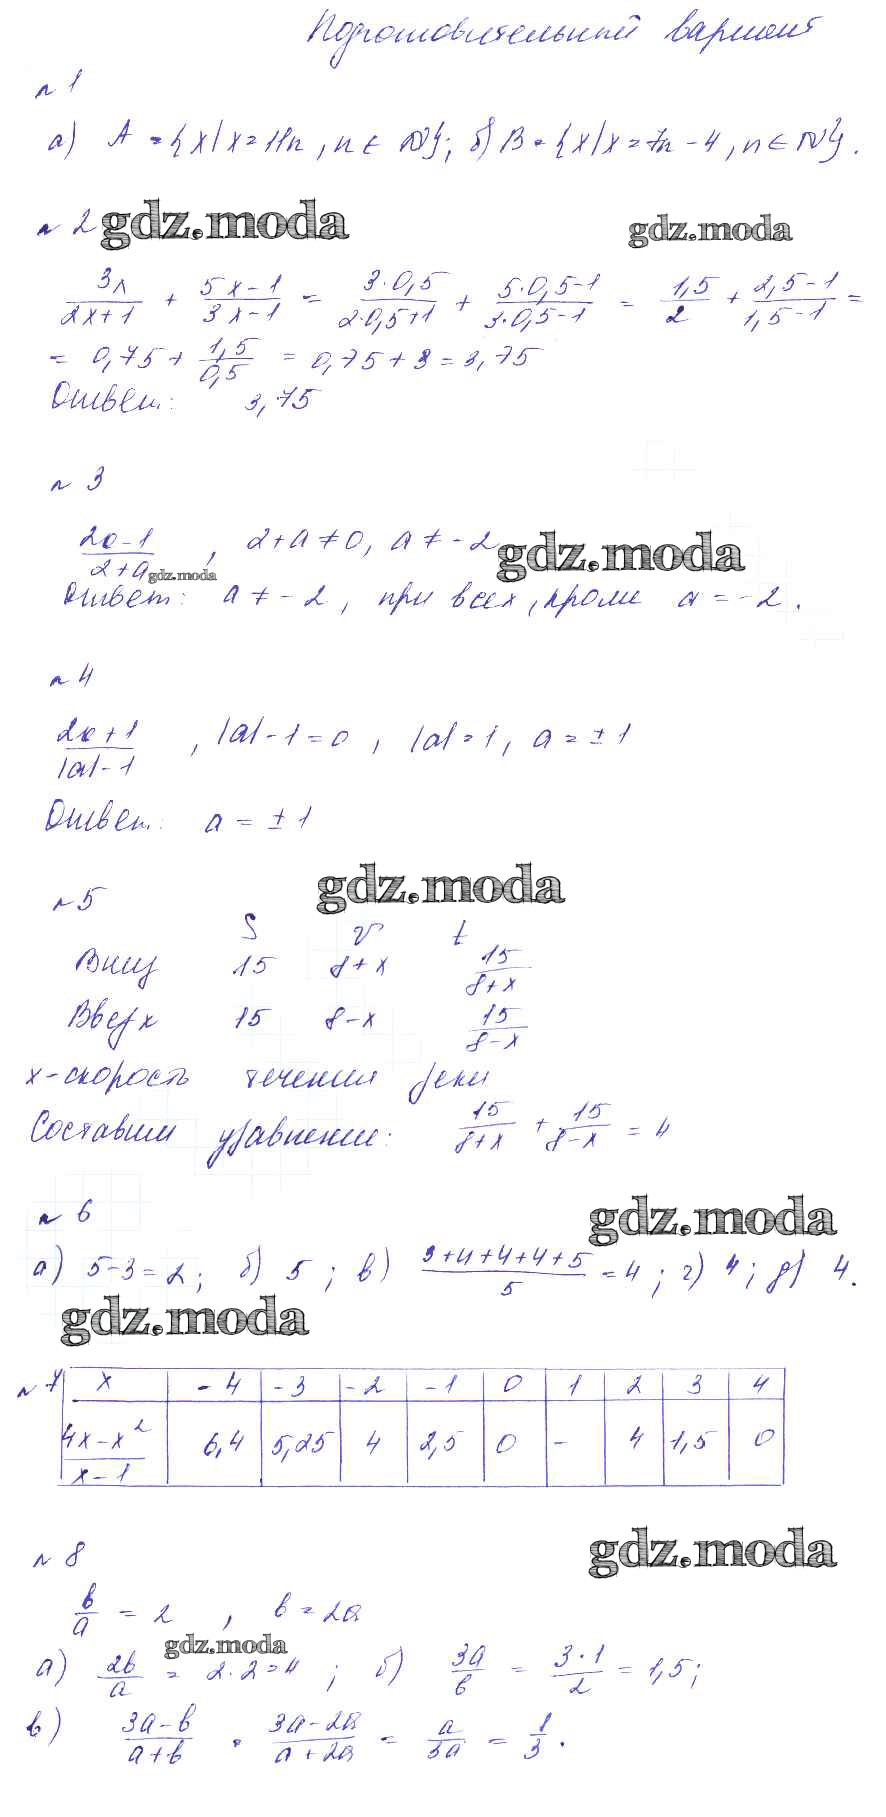 Подготовительный вариант
№ 1
а) A = {x/x = 11n, n ∈ N}; б) B = {x/x = 7n - 4, n ∈ N}.
№ 2 gdz.moda gdz.moda
3x/(2x+1) + (5x-1)/(3x-1) = 3·0,5/(2·0,5+1) + (5·0,5-1)/(3·0,5-1) = 1,5/2 + (2,5-1)/(1,5-1) =
= 0,75 + 1,5/0,5 = 0,75 + 3 = 3,75
Ответ: 3,75
№ 3
(2a-1)/(2+a), 2+a ≠ 0, a ≠ -2 gdz.moda
gdz.moda
Ответ: a ≠ -2, при всех, кроме a = -2.
№ 4
(2a+1)/(|a|-1), |a|-1 = 0, |a| = 1, a = ±1
Ответ: a = ±1
gdz.moda
№ 5
S v t
Вниз 15 8+x 15/(8+x)
Вверх 15 8-x 15/(8-x)
x - скорость течения реки
Составим уравнение: 15/(8+x) + 15/(8-x) = 4
№ 6 gdz.moda
а) 5-3 = 2; б) 5; в) (3+4+4+4+5)/5 = 4; г) 4; д) 4.
gdz.moda
№ 7 x -4 -3 -2 -1 0 1 2 3 4
(4x-x²)/(x-1) 6,4 5,25 4 2,5 0 - 4 1,5 0
№ 8 gdz.moda
b/a = 2, b = 2a
gdz.moda
а) 2b/a = 2·2 = 4; б) 3a/b = 3·1/2 = 1,5;
в) (3a-b)/(a+b) = (3a-2a)/(a+2a) = a/3a = 1/3.